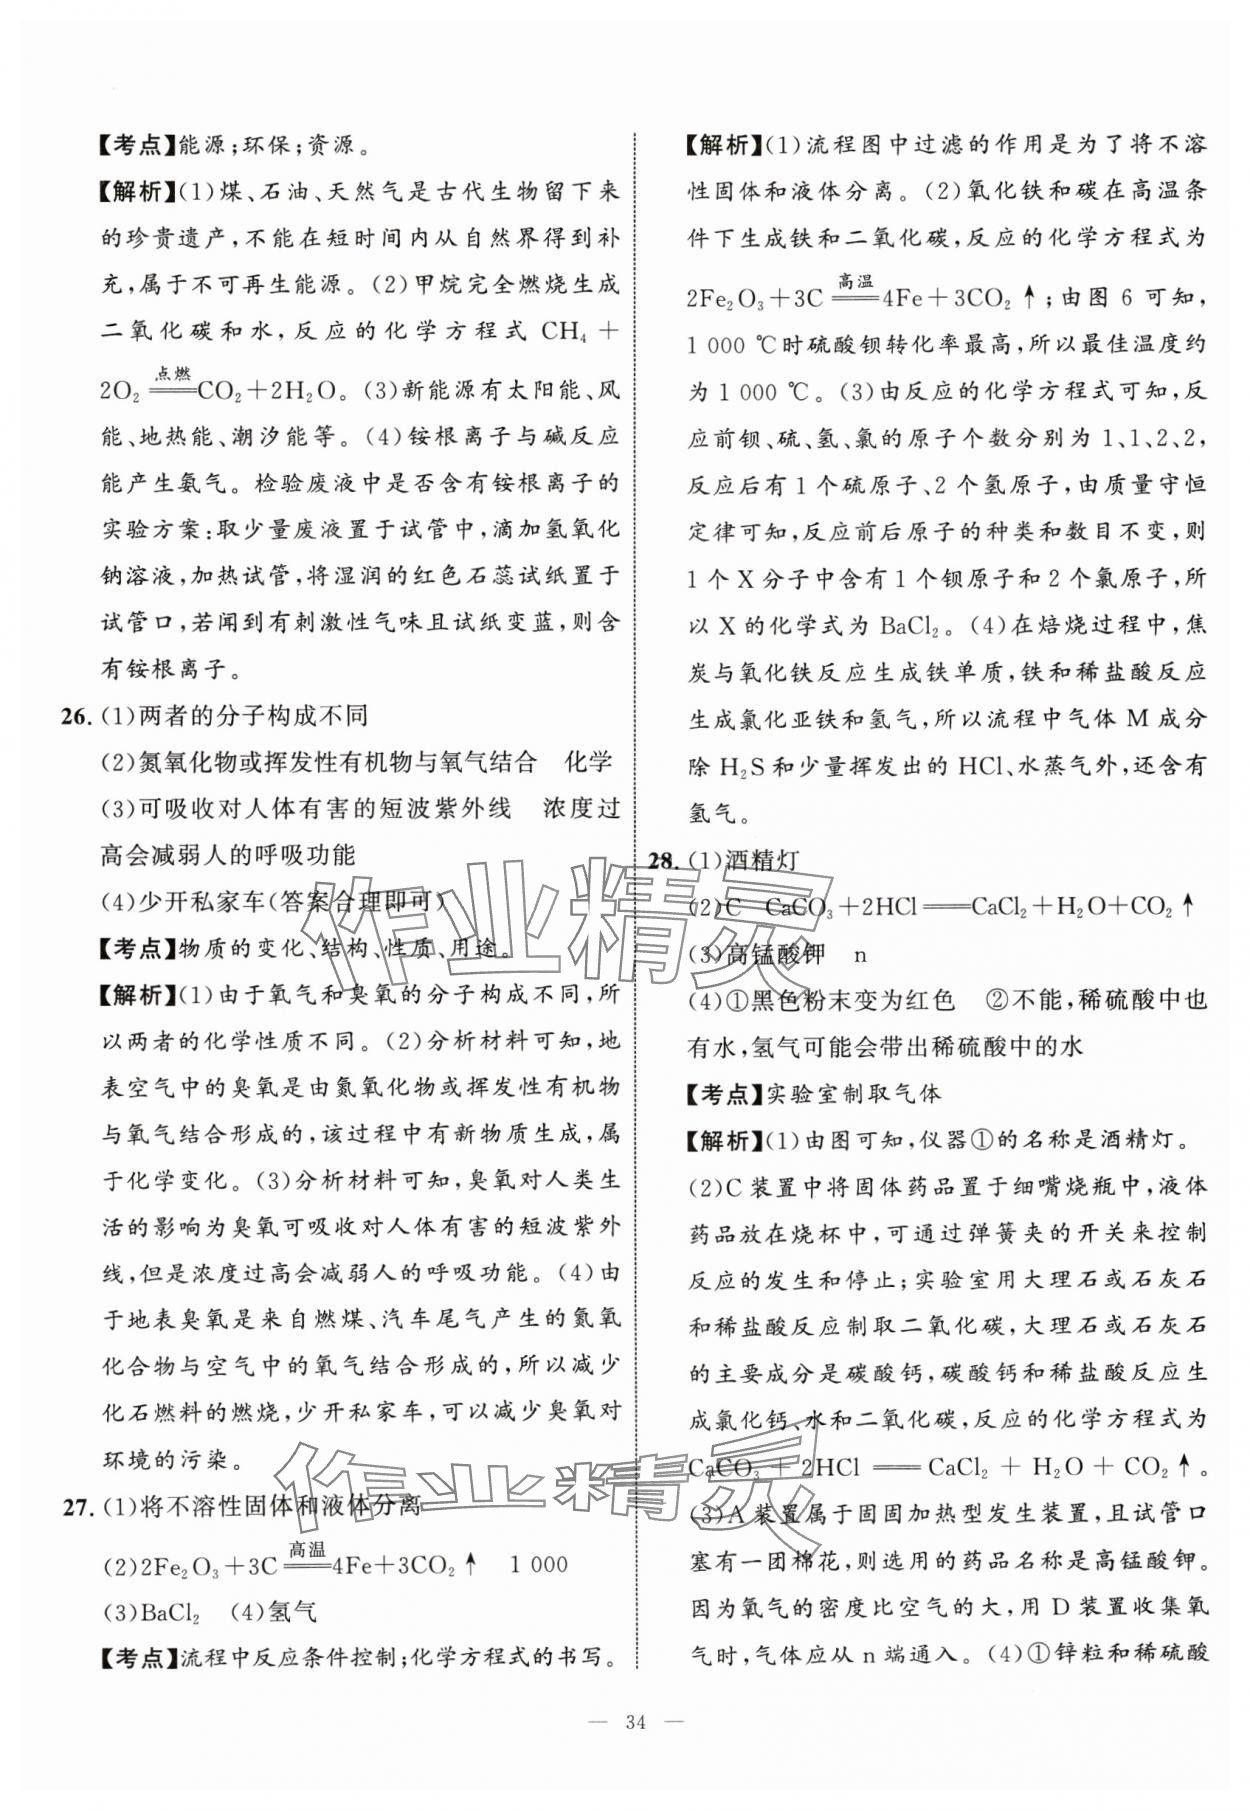 【考点】能源;环保;资源。
【解析】(1)煤、石油、天然气是古代生物留下来
的珍贵遗产,不能在短时间内从自然界得到补
充,属于不可再生能源。(2)甲烷完全燃烧生成
二氧化碳和水,反应的化学方程式 CH₄ +
2O₂ 点燃══ CO₂+2H₂O。(3)新能源有太阳能、风
能、地热能、潮汐能等。(4)铵根离子与碱反应
能产生氨气。检验废液中是否含有铵根离子的
实验方案:取少量废液置于试管中,滴加氢氧化
钠溶液,加热试管,将湿润的红色石蕊试纸置于
试管口,若闻到有刺激性气味且试纸变蓝,则含
有铵根离子。
26. (1)两者的分子构成不同
(2)氮氧化物或挥发性有机物与氧气结合 化学
(3)可吸收对人体有害的短波紫外线 浓度过
高会减弱人的呼吸功能
(4)少开私家车(答案合理即可)
【考点】物质的变化、结构、性质、用途。
【解析】(1)由于氧气和臭氧的分子构成不同,所
以两者的化学性质不同。(2)分析材料可知,地
表空气中的臭氧是由氮氧化物或挥发性有机物
与氧气结合形成的,该过程中有新物质生成,属
于化学变化。(3)分析材料可知,臭氧对人类生
活的影响为臭氧可吸收对人体有害的短波紫外
线,但是浓度过高会减弱人的呼吸功能。(4)由
于地表臭氧是来自燃煤、汽车尾气产生的氮氧
化合物与空气中的氧气结合形成的,所以减少
化石燃料的燃烧,少开私家车,可以减少臭氧对
环境的污染。
27. (1)将不溶性固体和液体分离
(2)2Fe₂O₃+3C 高温══ 4Fe+3CO₂↑ 1 000
(3)BaCl₂ (4)氢气
【考点】流程中反应条件控制;化学方程式的书写。
【解析】(1)流程图中过滤的作用是为了将不溶
性固体和液体分离。(2)氧化铁和碳在高温条
件下生成铁和二氧化碳,反应的化学方程式为
2Fe₂O₃+3C 高温══ 4Fe+3CO₂↑;由图 6 可知,
1 000 ℃时硫酸钡转化率最高,所以最佳温度约
为 1 000 ℃。(3)由反应的化学方程式可知,反
应前钡、硫、氢、氯的原子个数分别为 1、1、2、2,
反应后有 1 个硫原子、2 个氢原子,由质量守恒
定律可知,反应前后原子的种类和数目不变,则
1 个 X 分子中含有 1 个钡原子和 2 个氯原子,所
以 X 的化学式为 BaCl₂。(4)在焙烧过程中,焦
炭与氧化铁反应生成铁单质,铁和稀盐酸反应
生成氯化亚铁和氢气,所以流程中气体 M 成分
除 H₂S 和少量挥发出的 HCl、水蒸气外,还含有
氢气。
28. (1)酒精灯
(2)C CaCO₃+2HCl══CaCl₂+H₂O+CO₂↑
(3)高锰酸钾 n
(4)①黑色粉末变为红色 ②不能,稀硫酸中也
有水,氢气可能会带出稀硫酸中的水
【考点】实验室制取气体
【解析】(1)由图可知,仪器①的名称是酒精灯。
(2)C 装置中将固体药品置于细嘴烧瓶中,液体
药品放在烧杯中,可通过弹簧夹的开关来控制
反应的发生和停止;实验室用大理石或石灰石
和稀盐酸反应制取二氧化碳,大理石或石灰石
的主要成分是碳酸钙,碳酸钙和稀盐酸反应生
成氯化钙、水和二氧化碳,反应的化学方程式为
CaCO₃ + 2HCl ══ CaCl₂ + H₂O + CO₂↑。
(3)A 装置属于固固加热型发生装置,且试管口
塞有一团棉花,则选用的药品名称是高锰酸钾。
因为氧气的密度比空气的大,用 D 装置收集氧
气时,气体应从 n 端通入。(4)①锌粒和稀硫酸
作业精灵
作业精灵
— 34 —